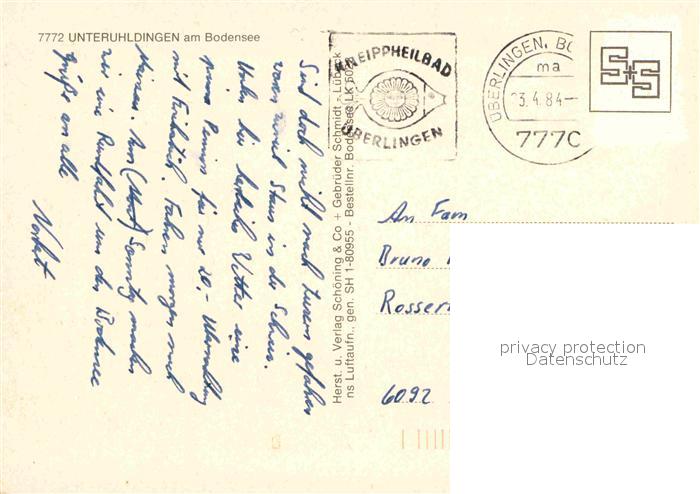 7772 UNTERUHLDINGEN am Bodensee
KNEIPPHEILBAD
ÜBERLINGEN
ÜBERLINGEN, BO
ma
23.4.84-
7770
Sind doch nicht nach Luzern gefahren
waren zuviel Staus in der Schweiz.
Haben bei herrlichem Wetter eine
Pension für nur 20,- Übernachtung
mit Frühstück. Fahren morgen nach
Meersau. Am Sonntag machen
wir eine Rundfahrt um den Bodensee
Grüße an alle
Norbert
Herst. u. Verlag Schöning & Co + Gebrüder Schmidt, Lübeck
ns Luftaufn., gen. SH 1-80955 - Bestellnr. Bodensee LK 50
An Fam
Bruno
Rosser
6092
privacy protection
Datenschutz